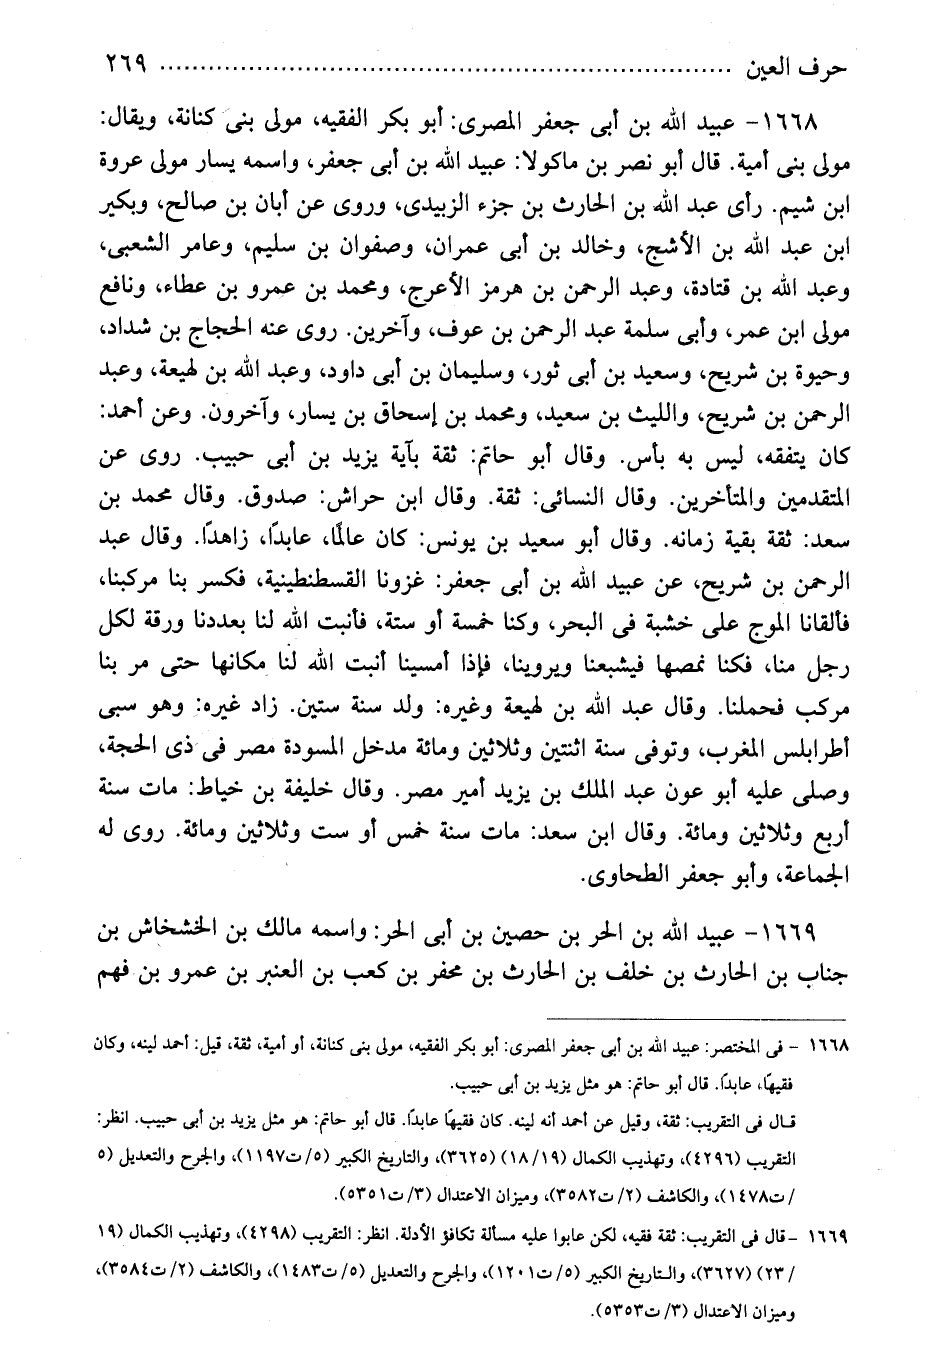 حرف العين ........................................................................ ٢٦٩
١٦٦٨- عبيد الله بن أبى جعفر المصرى: أبو بكر الفقيه، مولى بنى كنانة، ويقال:
مولى بنى أمية. قال أبو نصر بن ماكولا: عبيد الله بن أبى جعفر، واسمه يسار مولى عروة
ابن شيم. رأى عبد الله بن الحارث بن جزء الزبيدى، وروى عن أبان بن صالح، وبكير
ابن عبد الله بن الأشج، وخالد بن أبى عمران، وصفوان بن سليم، وعامر الشعبى،
وعبد الله بن قتادة، وعبد الرحمن بن هرمز الأعرج، ومحمد بن عمرو بن عطاء، ونافع
مولى ابن عمر، وأبى سلمة عبد الرحمن بن عوف، وآخرين. روى عنه الحجاج بن شداد،
وحيوة بن شريح، وسعيد بن أبى ثور، وسليمان بن أبى داود، وعبد الله بن لهيعة، وعبد
الرحمن بن شريح، والليث بن سعيد، ومحمد بن إسحاق بن يسار، وآخرون. وعن أحمد:
كان يتفقه، ليس به بأس. وقال أبو حاتم: ثقة بآية يزيد بن أبى حبيب. روى عن
المتقدمين والمتأخرين. وقال النسائى: ثقة. وقال ابن حراش: صدوق. وقال محمد بن
سعد: ثقة بقية زمانه. وقال أبو سعيد بن يونس: كان عالمًا، عابدًا، زاهدًا. وقال عبد
الرحمن بن شريح، عن عبيد الله بن أبى جعفر: غزونا القسطنطينية، فكسر بنا مركبنا،
فألقانا الموج على خشبة فى البحر، وكنا خمسة أو ستة، فأنبت الله لنا بعددنا ورقة لكل
رجل منا، فكنا نمصها فيشبعنا ويروينا، فإذا أمسينا أنبت الله لنا مكانها حتى مر بنا
مركب فحملنا. وقال عبد الله بن لهيعة وغيره: ولد سنة ستين. زاد غيره: وهو سبى
أطرابلس المغرب، وتوفى سنة اثنتين وثلاثين ومائة مدخل المسودة مصر فى ذى الحجة،
وصلى عليه أبو عون عبد الملك بن يزيد أمير مصر. وقال خليفة بن خياط: مات سنة
أربع وثلاثين ومائة. وقال ابن سعد: مات سنة خمس أو ست وثلاثين ومائة. روى له
الجماعة، وأبو جعفر الطحاوى.
١٦٦٩- عبيد الله بن الحر بن حصين بن أبى الحر: واسمه مالك بن الخشخاش بن
جناب بن الحارث بن خلف بن الحارث بن محفر بن كعب بن العنبر بن عمرو بن فهم
١٦٦٨ - فى المختصر: عبيد الله بن أبى جعفر المصرى: أبو بكر الفقيه، مولى بنى كنانة، أو أمية، ثقة، قيل: أحمد لينه، وكان
فقيهًا، عابدًا. قال أبو حاتم: هو مثل يزيد بن أبى حبيب.
قال فى التقريب: ثقة، وقيل عن أحمد أنه لينه. كان فقيهًا عابدًا. قال أبو حاتم: هو مثل يزيد بن أبى حبيب. انظر:
التقريب (٤٢٩٦)، وتهذيب الكمال (١٨/١٩) (٣٦٢٥)، والتاريخ الكبير (٥/ ت١١٩٧)، والجرح والتعديل (٥
/ ت١٤٧٨)، والكاشف (٢/ ت٣٥٨٢)، وميزان الاعتدال (٣/ ت٥٣٥١).
١٦٦٩ - قال فى التقريب: ثقة فقيه، لكن عابوا عليه مسألة تكافؤ الأدلة. انظر: التقريب (٤٢٩٨)، وتهذيب الكمال (١٩
/ ٢٣) (٣٦٢٧)، والتاريخ الكبير (٥/ ت١٢٠١)، والجرح والتعديل (٥/ ت١٤٨٣)، والكاشف (٢/ ت٣٥٨٤)،
وميزان الاعتدال (٣/ ت٥٣٥٣).